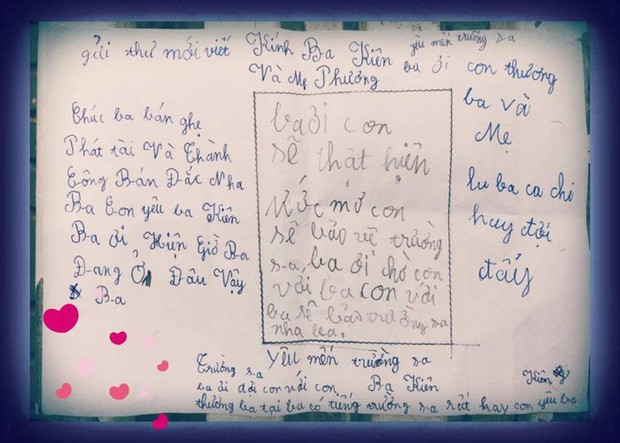 gửi thư mới viết
Kính Ba Kiên
Và Mẹ Phương
yêu mến trường sa
ba ơi con thương
ba và
Mẹ
lu ba ca chi
hay đợi
đấy
Chúc ba bán ghẹ
Phát tài Và Thành
Công Bán Đắc Nha
Ba Con yêu ba Kiên
Ba ơi Hiện Giờ Ba
Đang Ở Đâu Vậy
Ba
ba ơi con
sẽ thật hiện
ước mơ con
sẽ bảo vệ trường
sa, ba ơi chờ con
với con với
ba sẽ bảo trường sa
nha ba.
Yêu mến trường sa
Trường sa
ba ơi đợi con với con Ba Kiên
Kiên
thương ba tại ba có tiếng trường sa rất hay con yêu ba